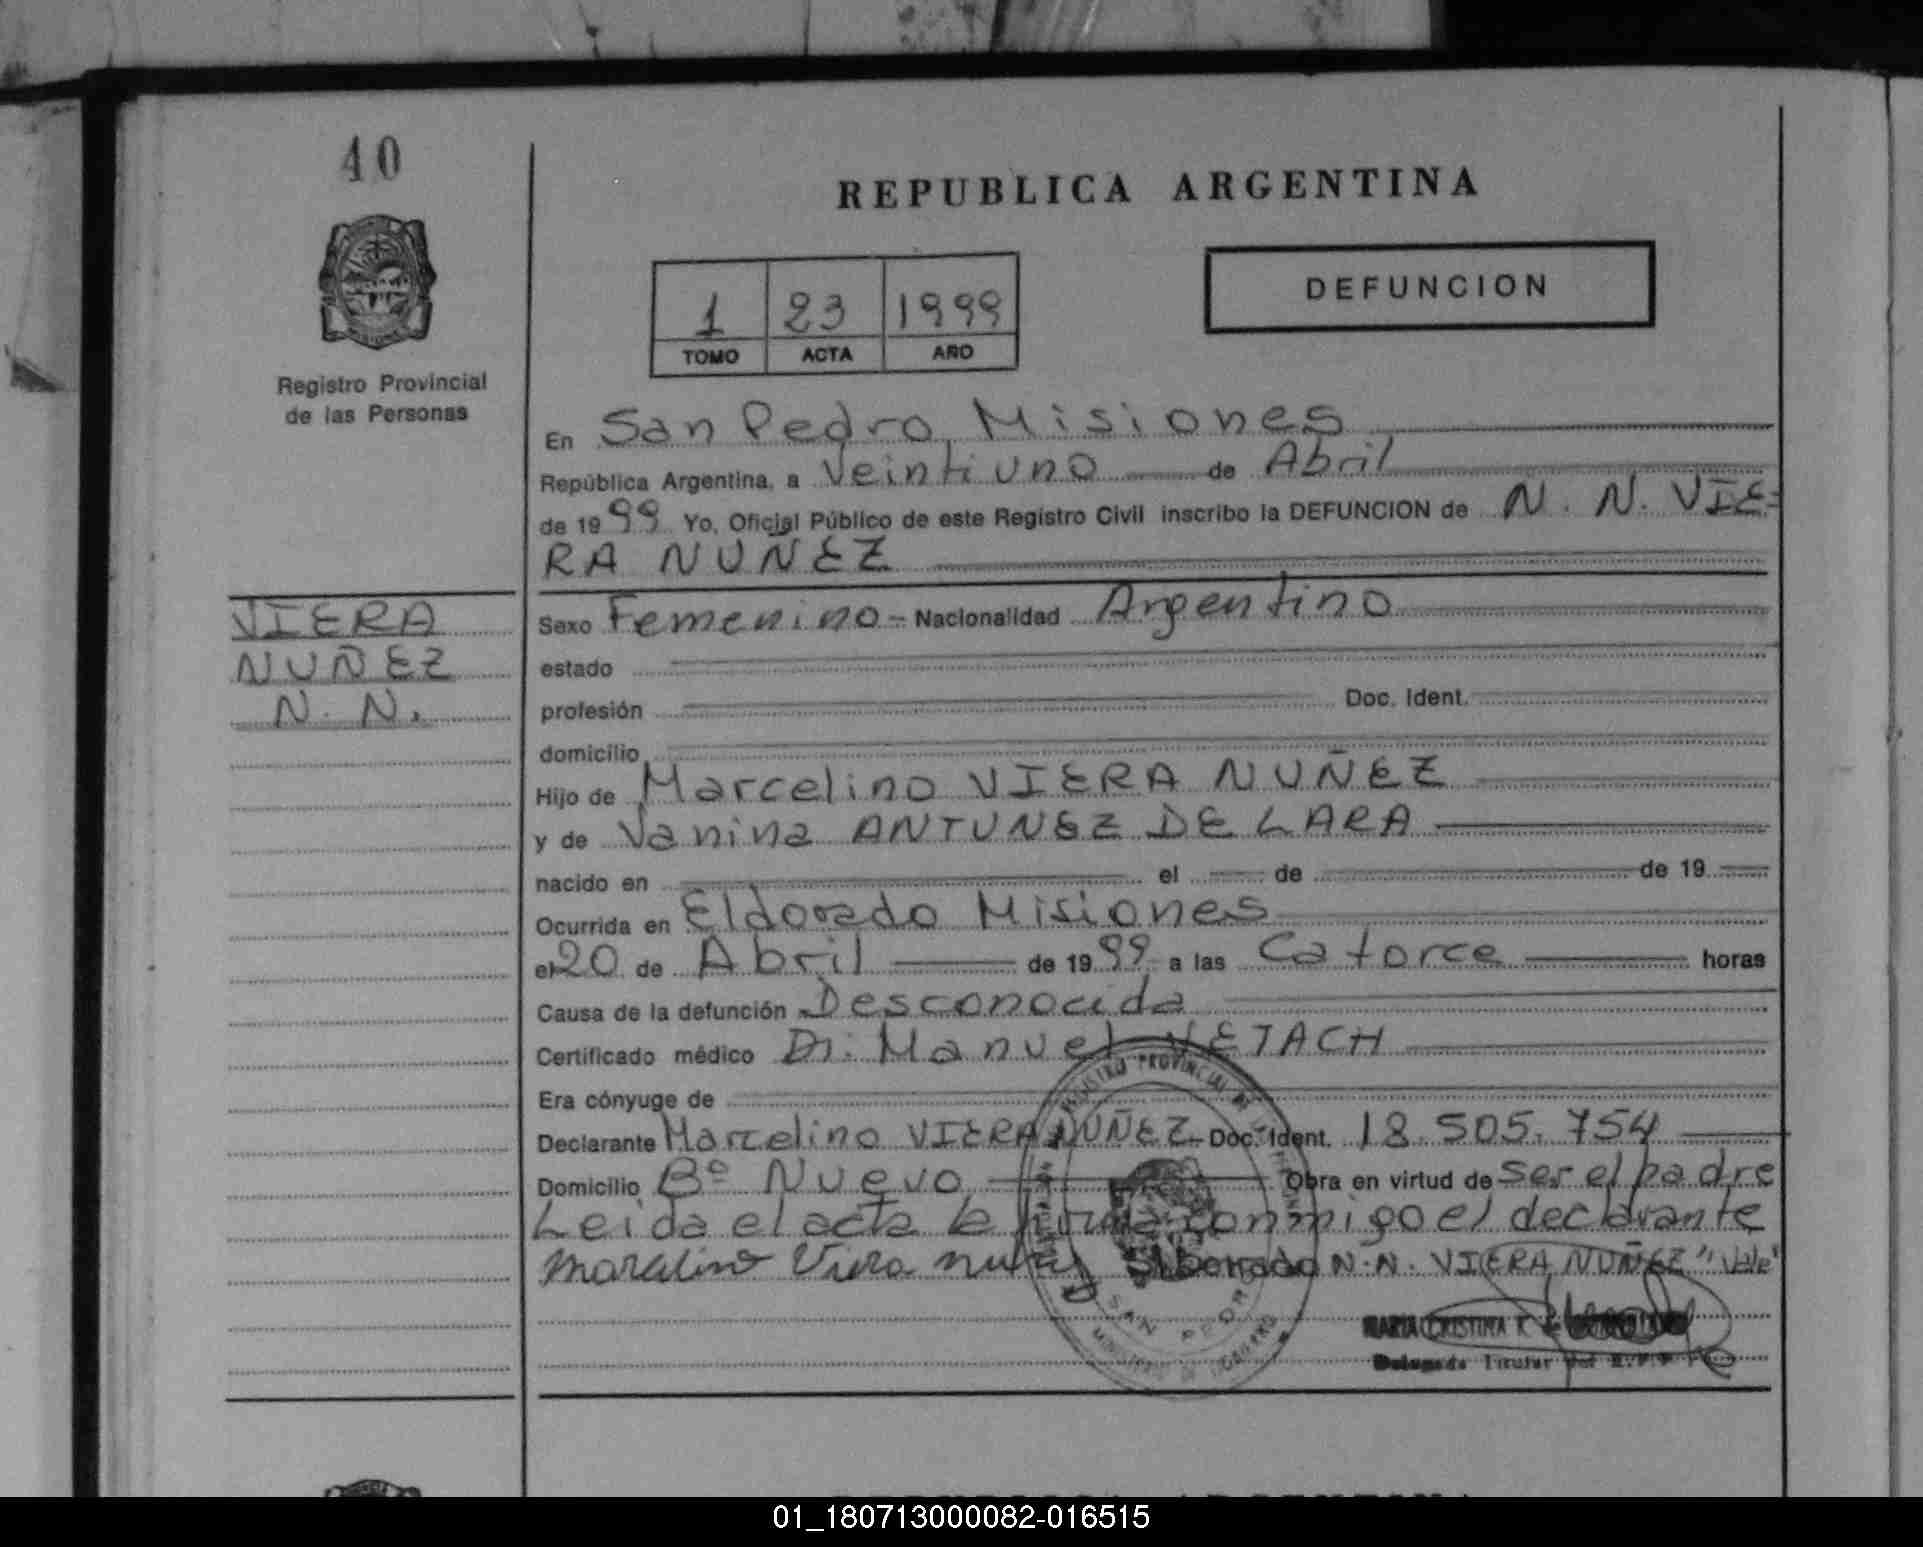 40
REPUBLICA ARGENTINA
DEFUNCION
1 23 1999
TOMO ACTA AÑO
Registro Provincial
de las Personas
En San Pedro, Misiones
República Argentina, a Veintiuno de Abril
de 1999 Yo, Oficial Público de este Registro Civil inscribo la DEFUNCION de N. N. VIE=
RA NUÑEZ
VIERA
NUÑEZ
N. N.
Sexo Femenino - Nacionalidad Argentino
estado
profesión Doc. Ident.
domicilio
Hijo de Marcelino VIERA NUÑEZ
y de Vanina ANTUNEZ DE LARA
nacido en el de de 19
Ocurrida en Eldorado Misiones
el 20 de Abril de 1999 a las Catorce horas
Causa de la defunción Desconocida
Certificado médico Dr. Manuel VETACH
Era cónyuge de
Declarante Marcelino VIERA NUÑEZ Doc. Ident. 18.505.754
Domicilio Bº Nuevo Obra en virtud de ser el padre
Leida el acta la firma conmigo el declarante
Marcelino Viera nuñez S/borrado N.N. VIERA NUÑEZ" Vale"
REGISTRO PROVINCIAL DE LAS PERSONAS
SAN PEDRO
MINISTERIO DE GOBIERNO
MARIA CRISTINA
Delegada Titular del R.P.P.
01_180713000082-016515